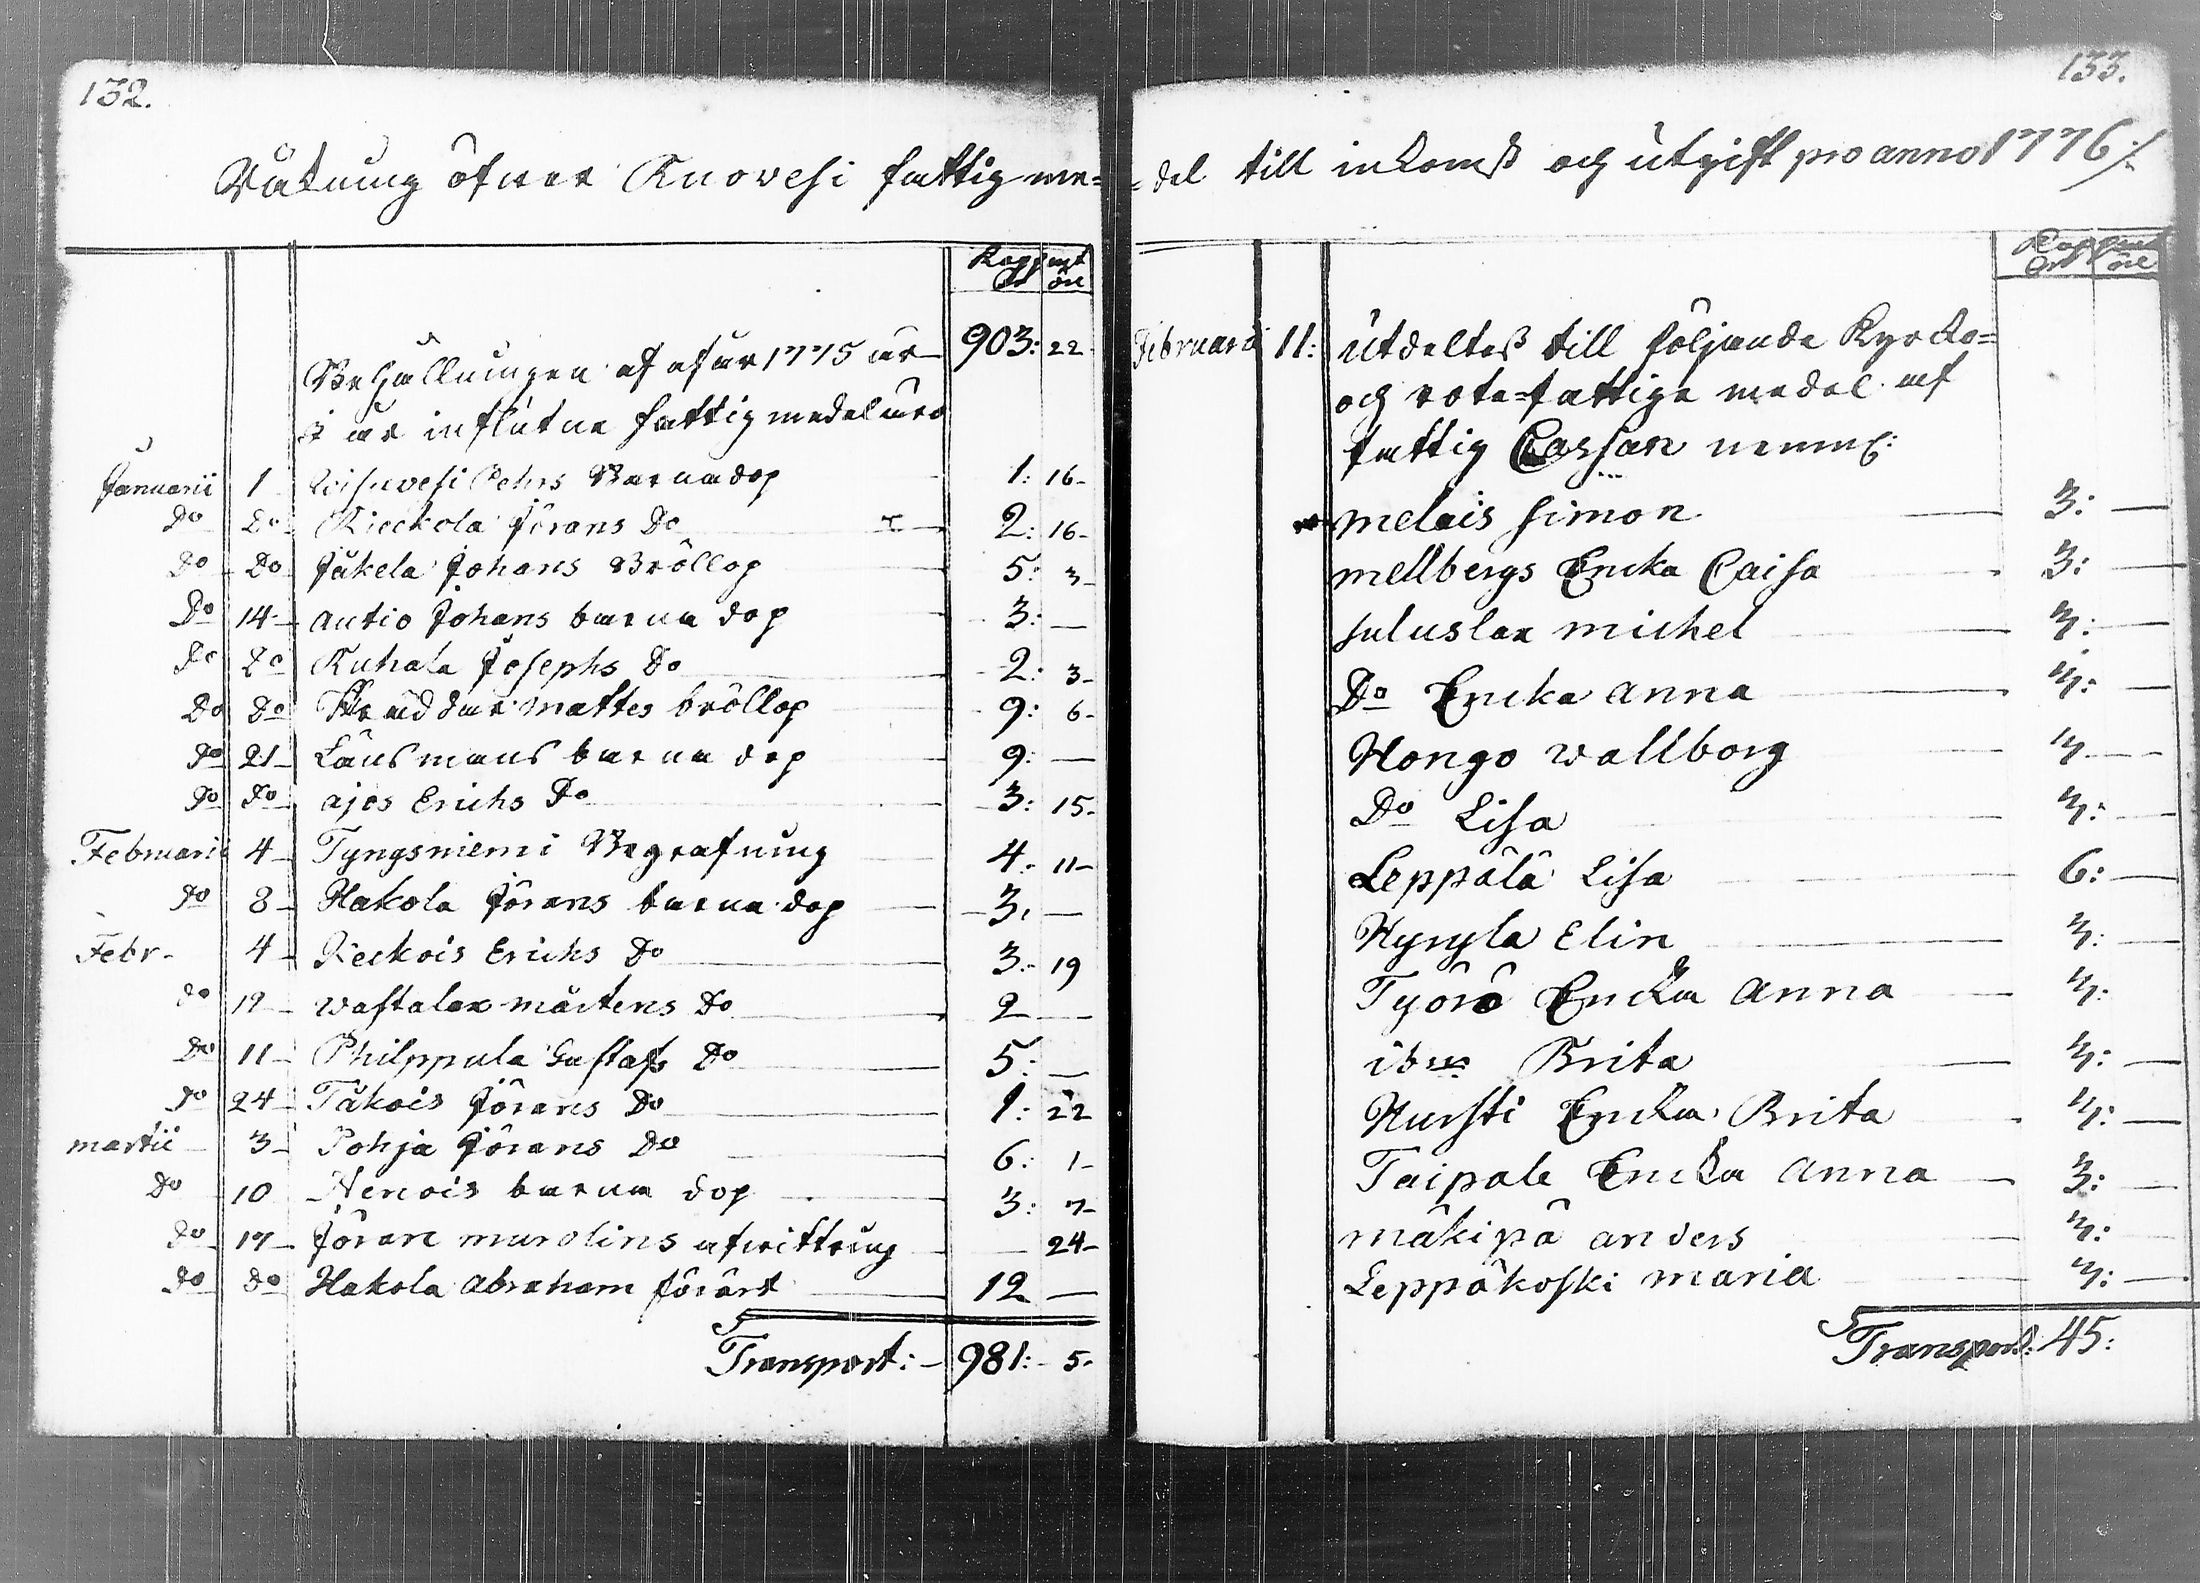 132.
Räkning öfwer Kuorvesi fattig me=
Koppmt
Dr öre
Behållningen af afår 1775 är 903: 22
i år influtna fattig medel äro
Januarii 1 Wisuvesi Pehrs Barnadop 1: 16-
Do Do Kieckola Jörans Do 2: 16-
Do Do Jäkela Johans Bröllop 5: 3-
Do 14- Autio Johans barna dop 3: —
Do Do Kuhala Josephs Do 2: 3-
Do Do Skräddar Mattes bröllop 9: 6-
Do 21- Länsmans barna dop 9: —
Do Do Ajos Erichs Do 3: 15-
Februarii 4- Tyngsniemi Begrafning 4: 11-
Do 8- Hakola Jörans barna dop 3: —
Febr- 4- Reckois Erichs Do 3: 19
Do 19- Wastalax Mårtens Do 2 —
Do 11- Philppula Gustafs Do 5: —
Do 24- Täkois Jörans Do 1: 22
Martii 3- Pohja Jörans Do 6: 1-
Do 10 Nenois barna dop 3: 7-
Do 17- Jöran Murolins afwittring — 24-
Do Do Hakola Abraham förärt 12 —
Transport: 981: 5-
133.
del till inkomst och utgift pro anno 1776 ./.
Februarii 11: utdeltes till följande Kyrcko=
och rote=fattiga medel af
fattig Cassan neml:
Melais Simon 3: —
Mellbergs Encka Caisa 3: —
Suluslax Michel 3: —
Do Encka Anna 3: —
Hongo Wallborg 3 —
Do Lisa 3: —
Leppälä Lisa 6: —
Hyryla Elin 3: —
Työrö Encka Anna 3:
ibm Brita 3: —
Hursti Encka Brita 3: —
Taipale Encka Anna 3: —
Mäkipä Anders 3: —
Leppäkoski Maria 3: —
Transport: 45: